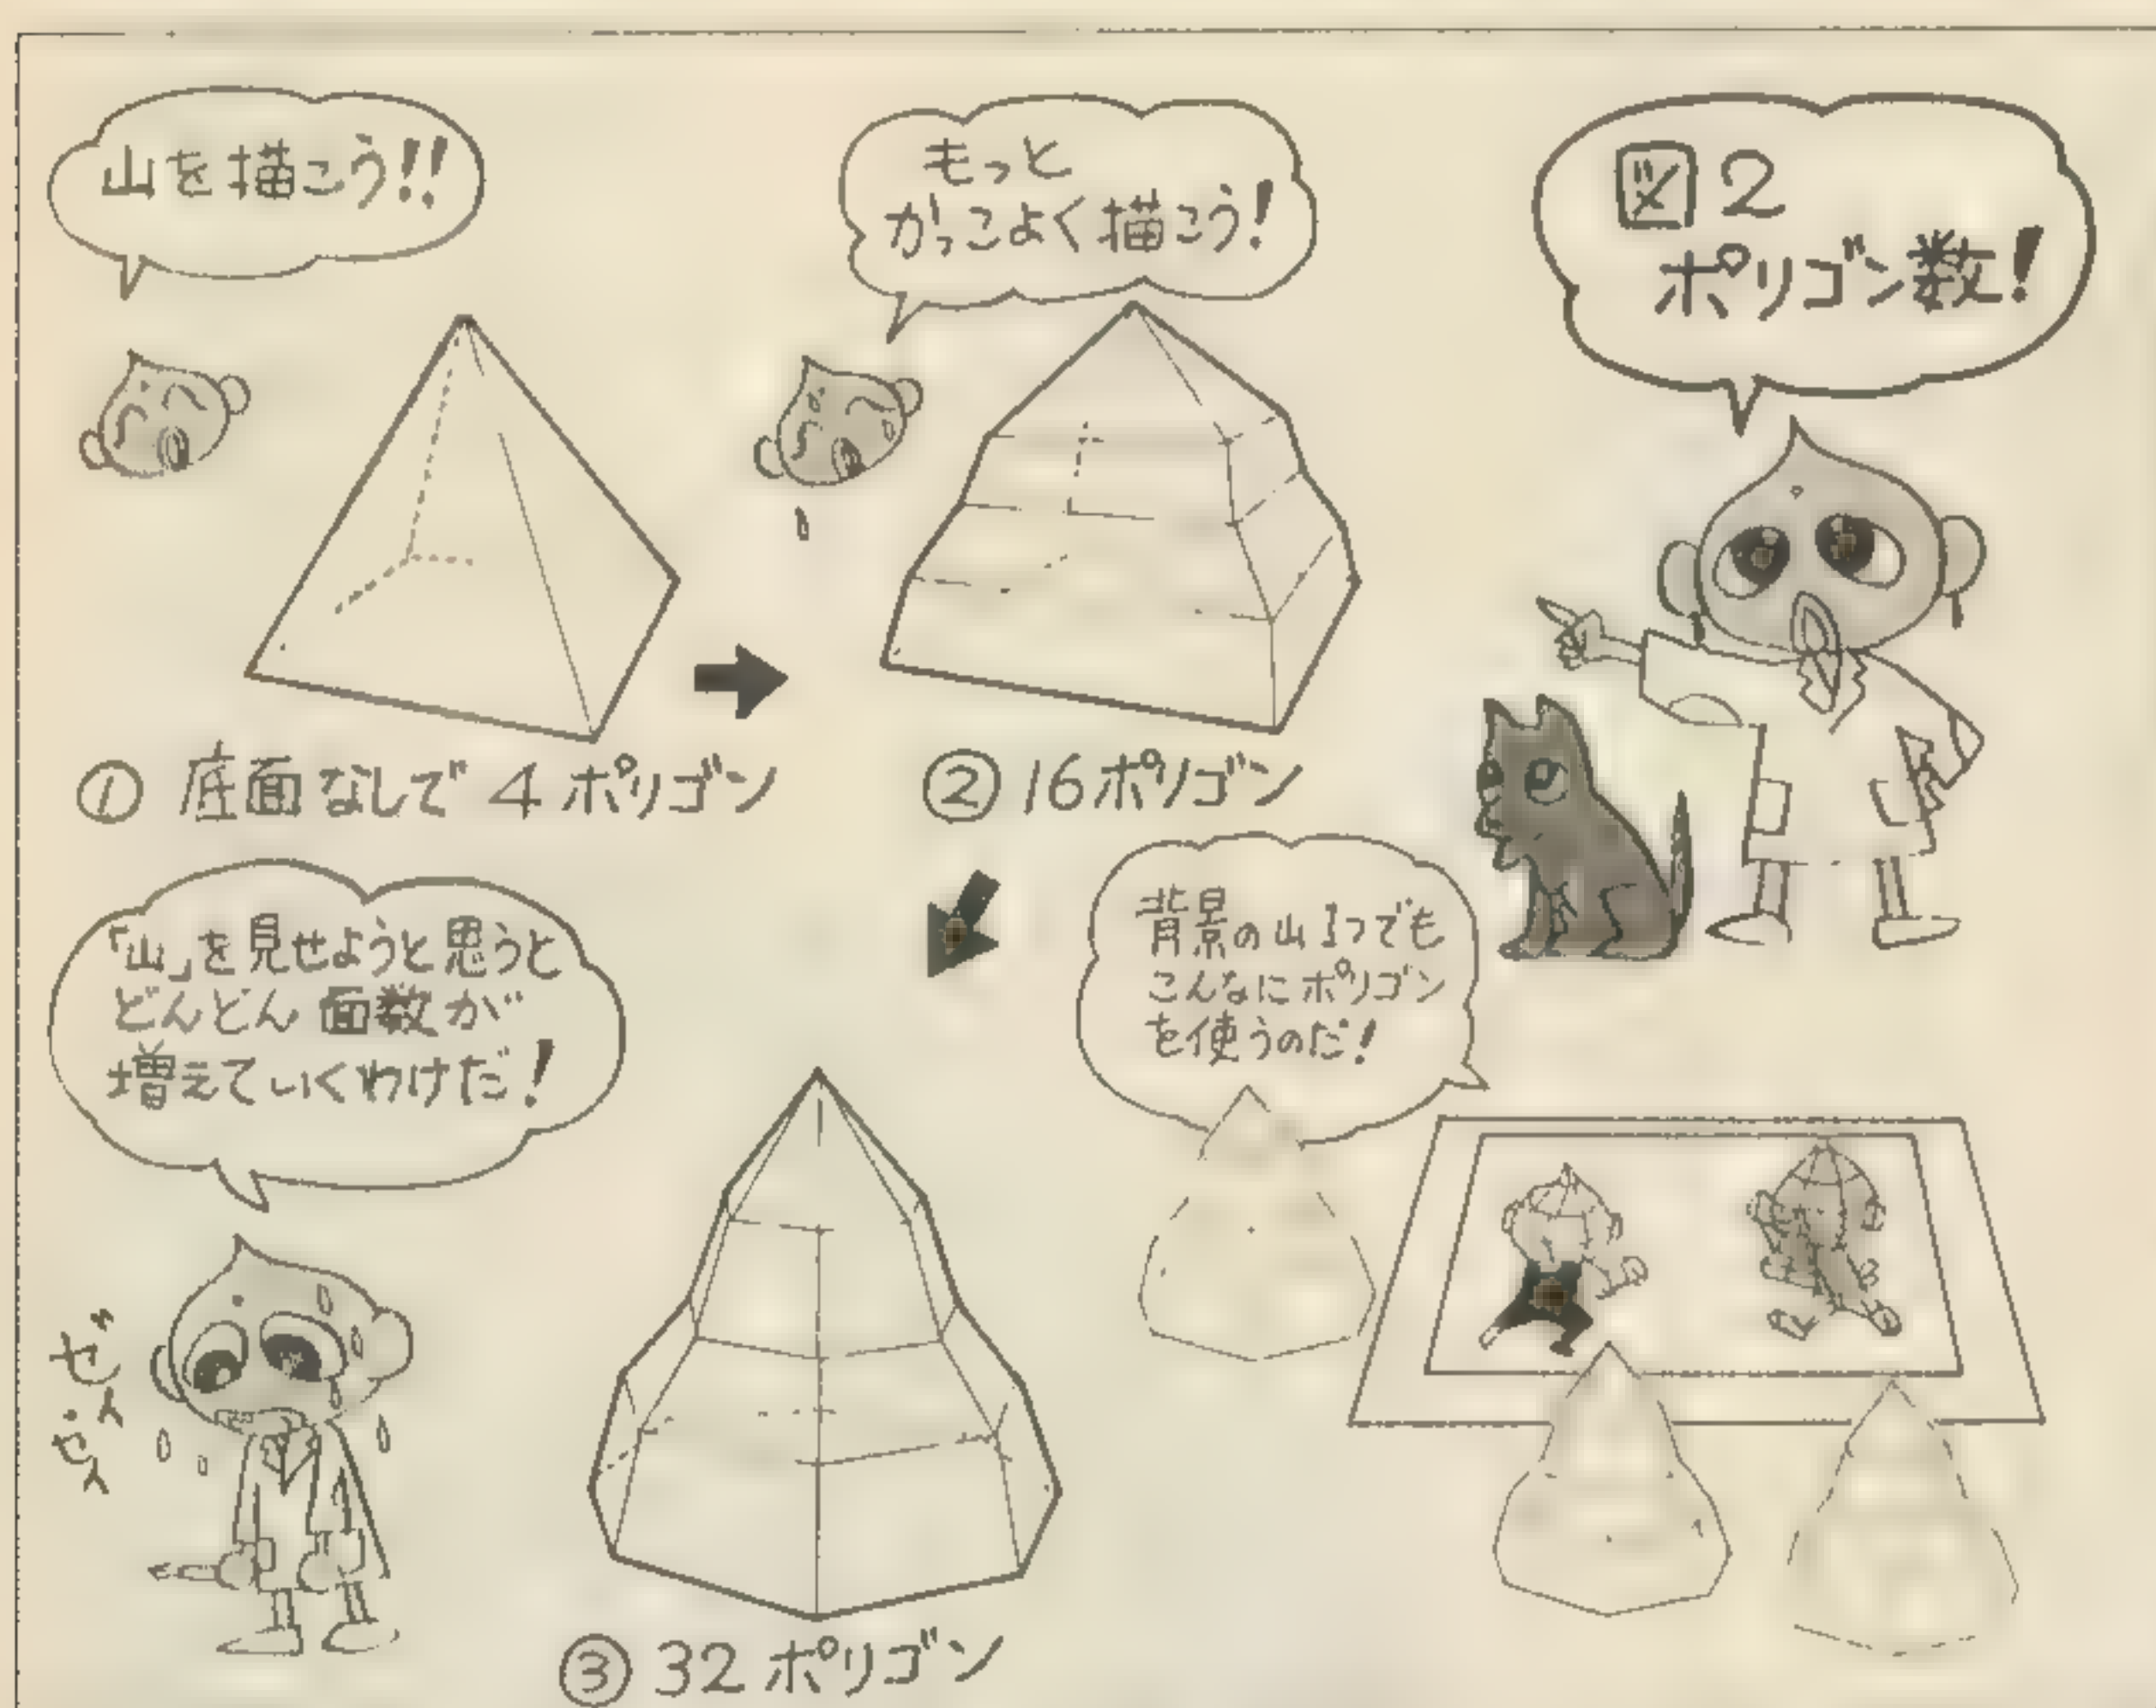 山を描こう!!
もっと
かっこよく描こう!
図2
ポリゴン数!
① 底面なしで 4 ポリゴン
② 16ポリゴン
「山」を見せようと思うと
どんどん 面数が
増えていくわけだ!
背景の山1つでも
こんなにポリゴン
を使うのだ!
ゼス
ゼス
③ 32 ポリゴン